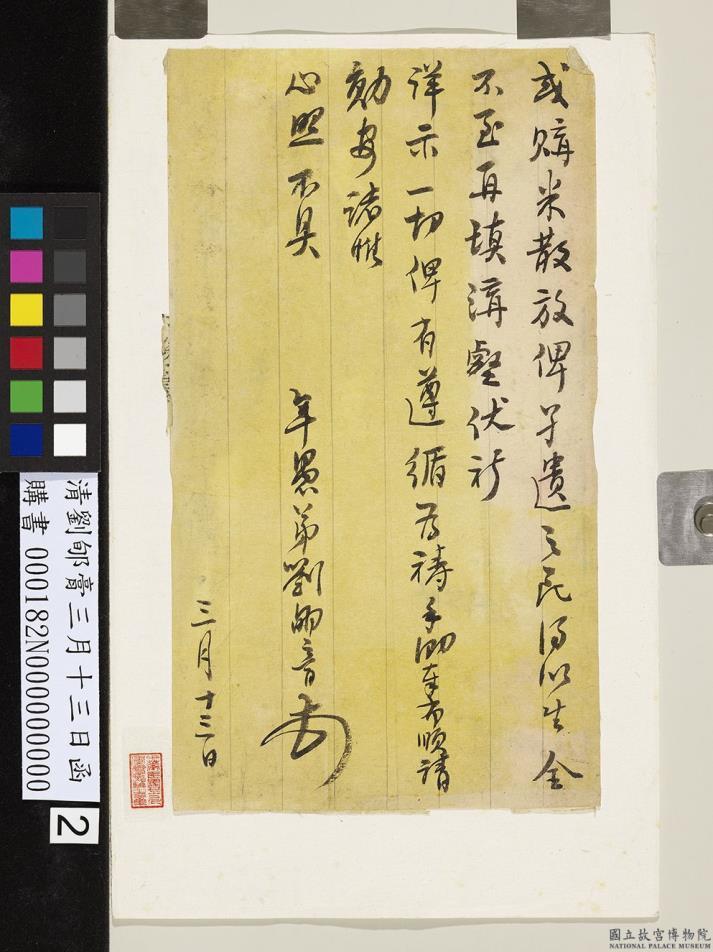 或購米散放俾孑遺之民得以生全
不至再填溝壑伏祈
詳示一切俾有遵循為禱手泐奉布順請
勛安諸惟
心照不具
年愚弟劉郇膏
三月十三日
清劉郇膏三月十三日函
購書 000182N0000000000
2
國立故宮博物院
NATIONAL PALACE MUSEUM